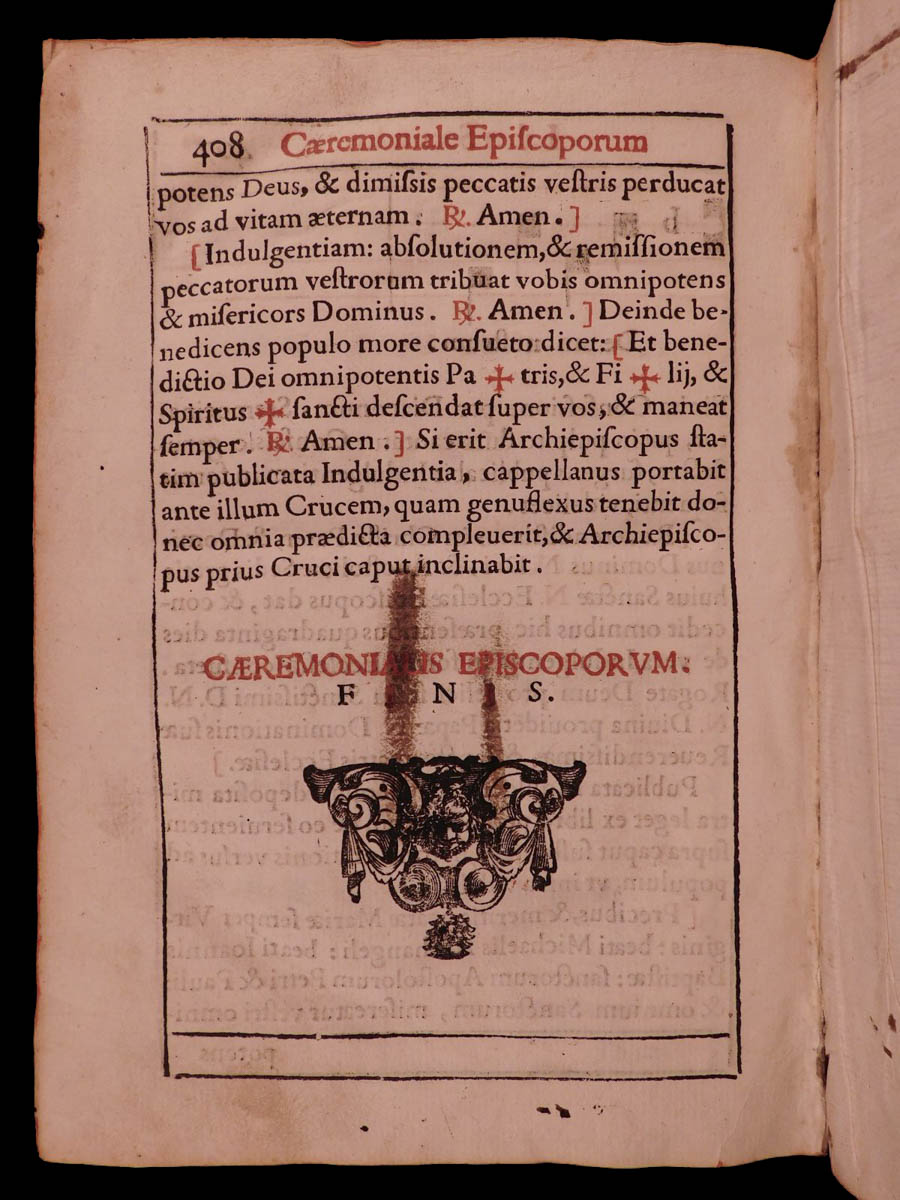 408. Cæremoniale Epiſcoporum
potens Deus, & dimiſsis peccatis veſtris perducat
vos ad vitam æternam. ℟. Amen.]
[Indulgentiam: abſolutionem, & remiſſionem
peccatorum veſtrorum tribuat vobis omnipotens
& miſericors Dominus. ℟. Amen.] Deinde be-
nedicens populo more conſueto dicet: [Et bene-
dictio Dei omnipotentis Pa ✠ tris, & Fi ✠ lij, &
Spiritus ✠ ſancti deſcendat ſuper vos, & maneat
ſemper. ℟. Amen.] Si erit Archiepiſcopus ſta-
tim publicata Indulgentia, cappellanus portabit
ante illum Crucem, quam genuflexus tenebit do-
nec omnia prædicta compleuerit, & Archiepiſco-
pus prius Cruci caput inclinabit.
CÆREMONIALIS EPISCOPORVM.
F I N I S.